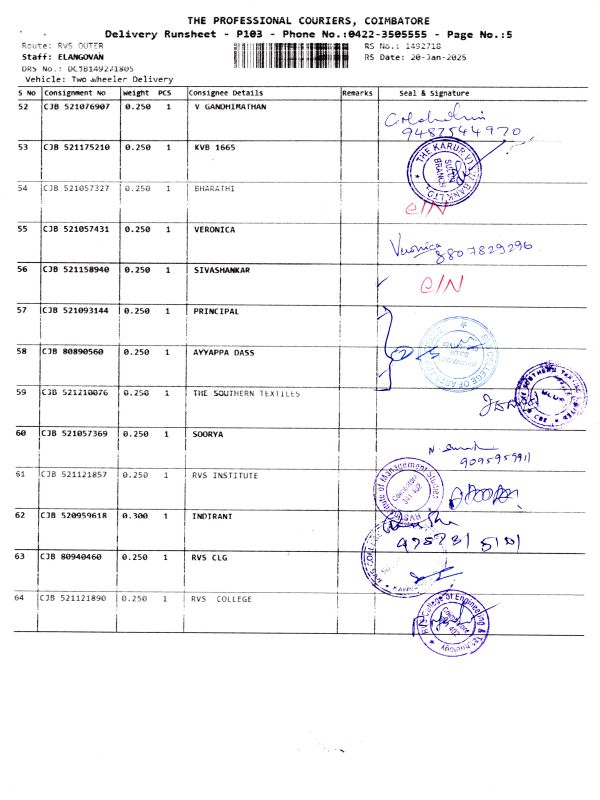 THE PROFESSIONAL COURIERS, COIMBATORE
Delivery Runsheet - P103 - Phone No.:0422-3505555 - Page No.:5
Route: RVS OUTER RS No.: 1492718
Staff: ELANGOVAN RS Date: 20-Jan-2025
DRS No.: DCJB149271805
Vehicle: Two Wheeler Delivery
S No Consignment No Weight PCS Consignee Details Remarks Seal & Signature
52 CJB 521076907 0.250 1 V GANDHIMATHAN
9487544970
53 CJB 521175210 0.250 1 KVB 1665
THE KARUR VYSYA BANK LTD.
SULUR BRANCH
54 CJB 521057327 0.250 1 BHARATHI
C/N
55 CJB 521057431 0.250 1 VERONICA
Veronica
8807829296
56 CJB 521158940 0.250 1 SIVASHANKAR
C/N
57 CJB 521093144 0.250 1 PRINCIPAL
58 CJB 80890560 0.250 1 AYYAPPA DASS
59 CJB 521210076 0.250 1 THE SOUTHERN TEXTILES
60 CJB 521057369 0.250 1 SOORYA
9095959911
61 CJB 521121857 0.250 1 RVS INSTITUTE
RVS Institute of Management Studies
Coimbatore
641 402
62 CJB 520959618 0.300 1 INDIRANI
63 CJB 80940460 0.250 1 RVS CLG
64 CJB 521121890 0.250 1 RVS COLLEGE
RVS College of Engineering & Technology
Coimbatore